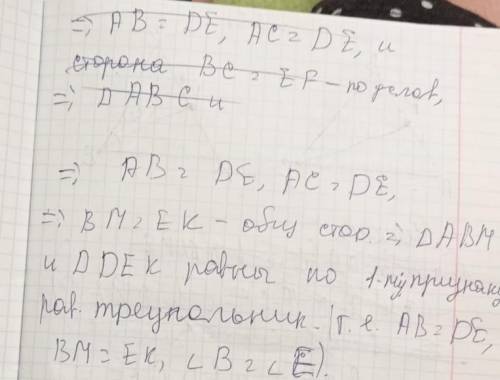 => AB = DE, AC = DE, и
сторона BC = EF – по услов,
=> ΔABC и
=> AB = DE, AC = DE,
=> BM = EK – общ стор. => ΔABM
и ΔDEK равны по 1-му признаку
рав. треугольник. (т. е. AB = DE,
BM = EK, ∠B = ∠E).